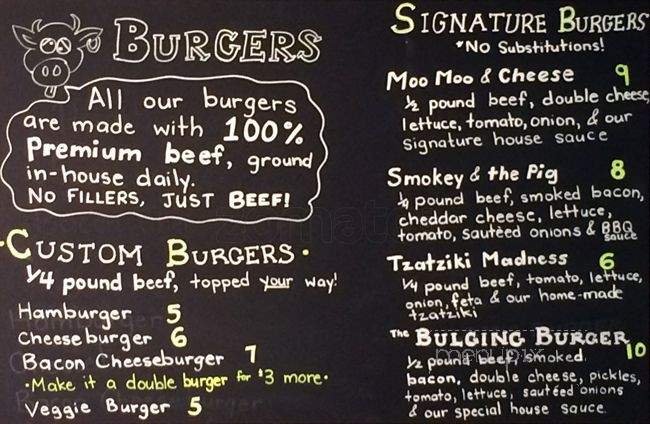 BURGERS
All our burgers
are made with 100%
Premium beef, ground
in-house daily.
NO FILLERS, JUST BEEF!
• CUSTOM BURGERS •
1/4 pound beef, topped your way!
Hamburger 5
Cheeseburger 6
Bacon Cheeseburger 7
•Make it a double burger for $3 more•
Veggie Burger 5
SIGNATURE BURGERS
*No Substitutions!
Moo Moo & Cheese 9
1/2 pound beef, double cheese,
lettuce, tomato, onion, & our
signature house sauce
Smokey & the Pig 8
1/4 pound beef, smoked bacon,
cheddar cheese, lettuce,
tomato, sautéed onions & BBQ
sauce
Tzatziki Madness 6
1/4 pound beef, tomato, lettuce,
onion, feta & our home-made
tzatziki
The BULGING BURGER 10
1/2 pound beef, smoked
bacon, double cheese, pickles,
tomato, lettuce, sautéed onions
& our special house sauce
menupix